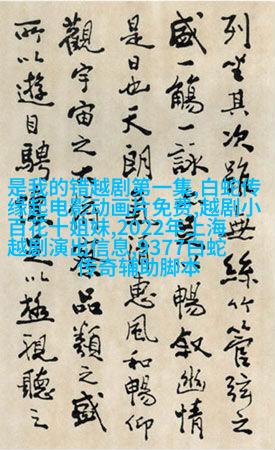 列坐其次雖無絲竹管弦之
盛一觴一詠暢敘幽情
是日也天朗清惠風和暢仰
觀宇宙之大品類之盛
所以遊目騁以極視聽之
是我的错越剧第一集,白蛇传
缘起电影动画片免费,越剧小
百花十姐妹,2022年上海
越剧演出信息,9377白蛇
传奇辅助脚本